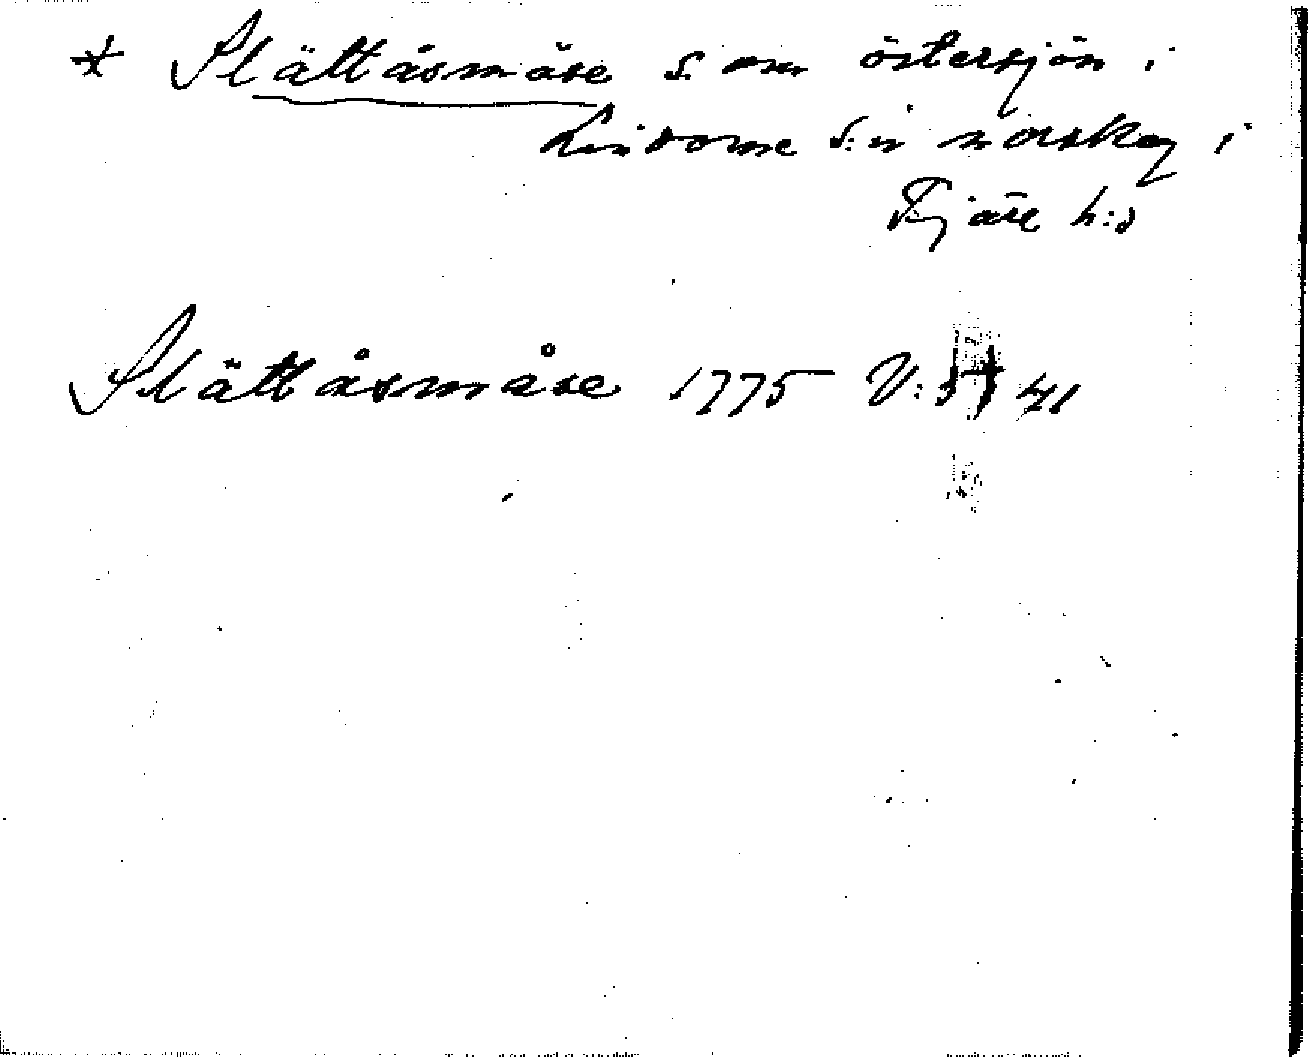 * Slättåsmåse s. om östersjön i
Lindome s:n norskog i
Fjäre h:d
Slättåsmåse 1775 V: 41